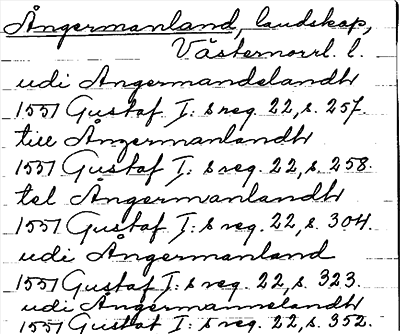 Ångermanland, landskap,
Västernorrl. l.
udi Angermandelandh
1551 Gustaf I: s reg. 22, s. 257.
till Ångermanlandh
1551 Gustaf I: s reg. 22, s. 258
tel Ångermanlandh
1551 Gustaf I: s reg. 22, s. 304.
udi Ångermanland
1551 Gustaf I: s reg. 22, s. 323.
udi Ångermannelandh
1551 Gustaf I: s reg. 22, s. 352.